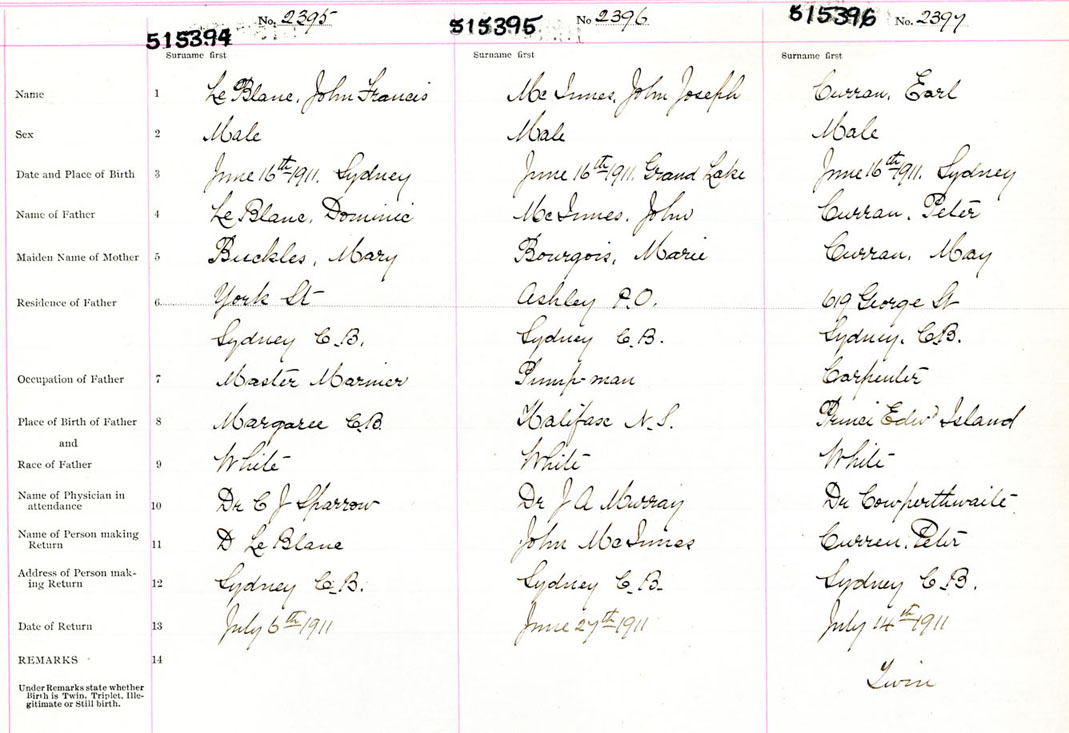 No. 2395 No 2396 No. 2397
515394 515395 515396
Surname first Surname first Surname first
Name 1 Le Blanc, John Francis Mc Innes, John Joseph Curran, Earl
Sex 2 Male Male Male
Date and Place of Birth 3 June 16th 1911. Sydney June 16th 1911. Grand Lake June 16th 1911. Sydney
Name of Father 4 Le Blanc, Dominic McInnes, John Curran, Peter
Maiden Name of Mother 5 Buckles, Mary Bourgois, Marie Curran, May
Residence of Father 6 York St Ashley P.O. 619 George St
Sydney C.B. Sydney C.B. Sydney. C.B.
Occupation of Father 7 Master Mariner Pump-man Carpenter
Place of Birth of Father 8 Margaree C.B. Halifax N.S. Prince Edwd Island
and
Race of Father 9 White White White
Name of Physician in
attendance 10 Dr C J Sparrow Dr J A Murray Dr Cowperthwaite
Name of Person making
Return 11 D Le Blanc John McInnes Curren, Peter
Address of Person mak-
ing Return 12 Sydney C.B. Sydney C.B. Sydney C.B.
Date of Return 13 July 6th 1911 June 27th 1911 July 14th 1911
REMARKS 14
Twin
Under Remarks state whether
Birth is Twin, Triplet, Ille-
gitimate or Still birth.